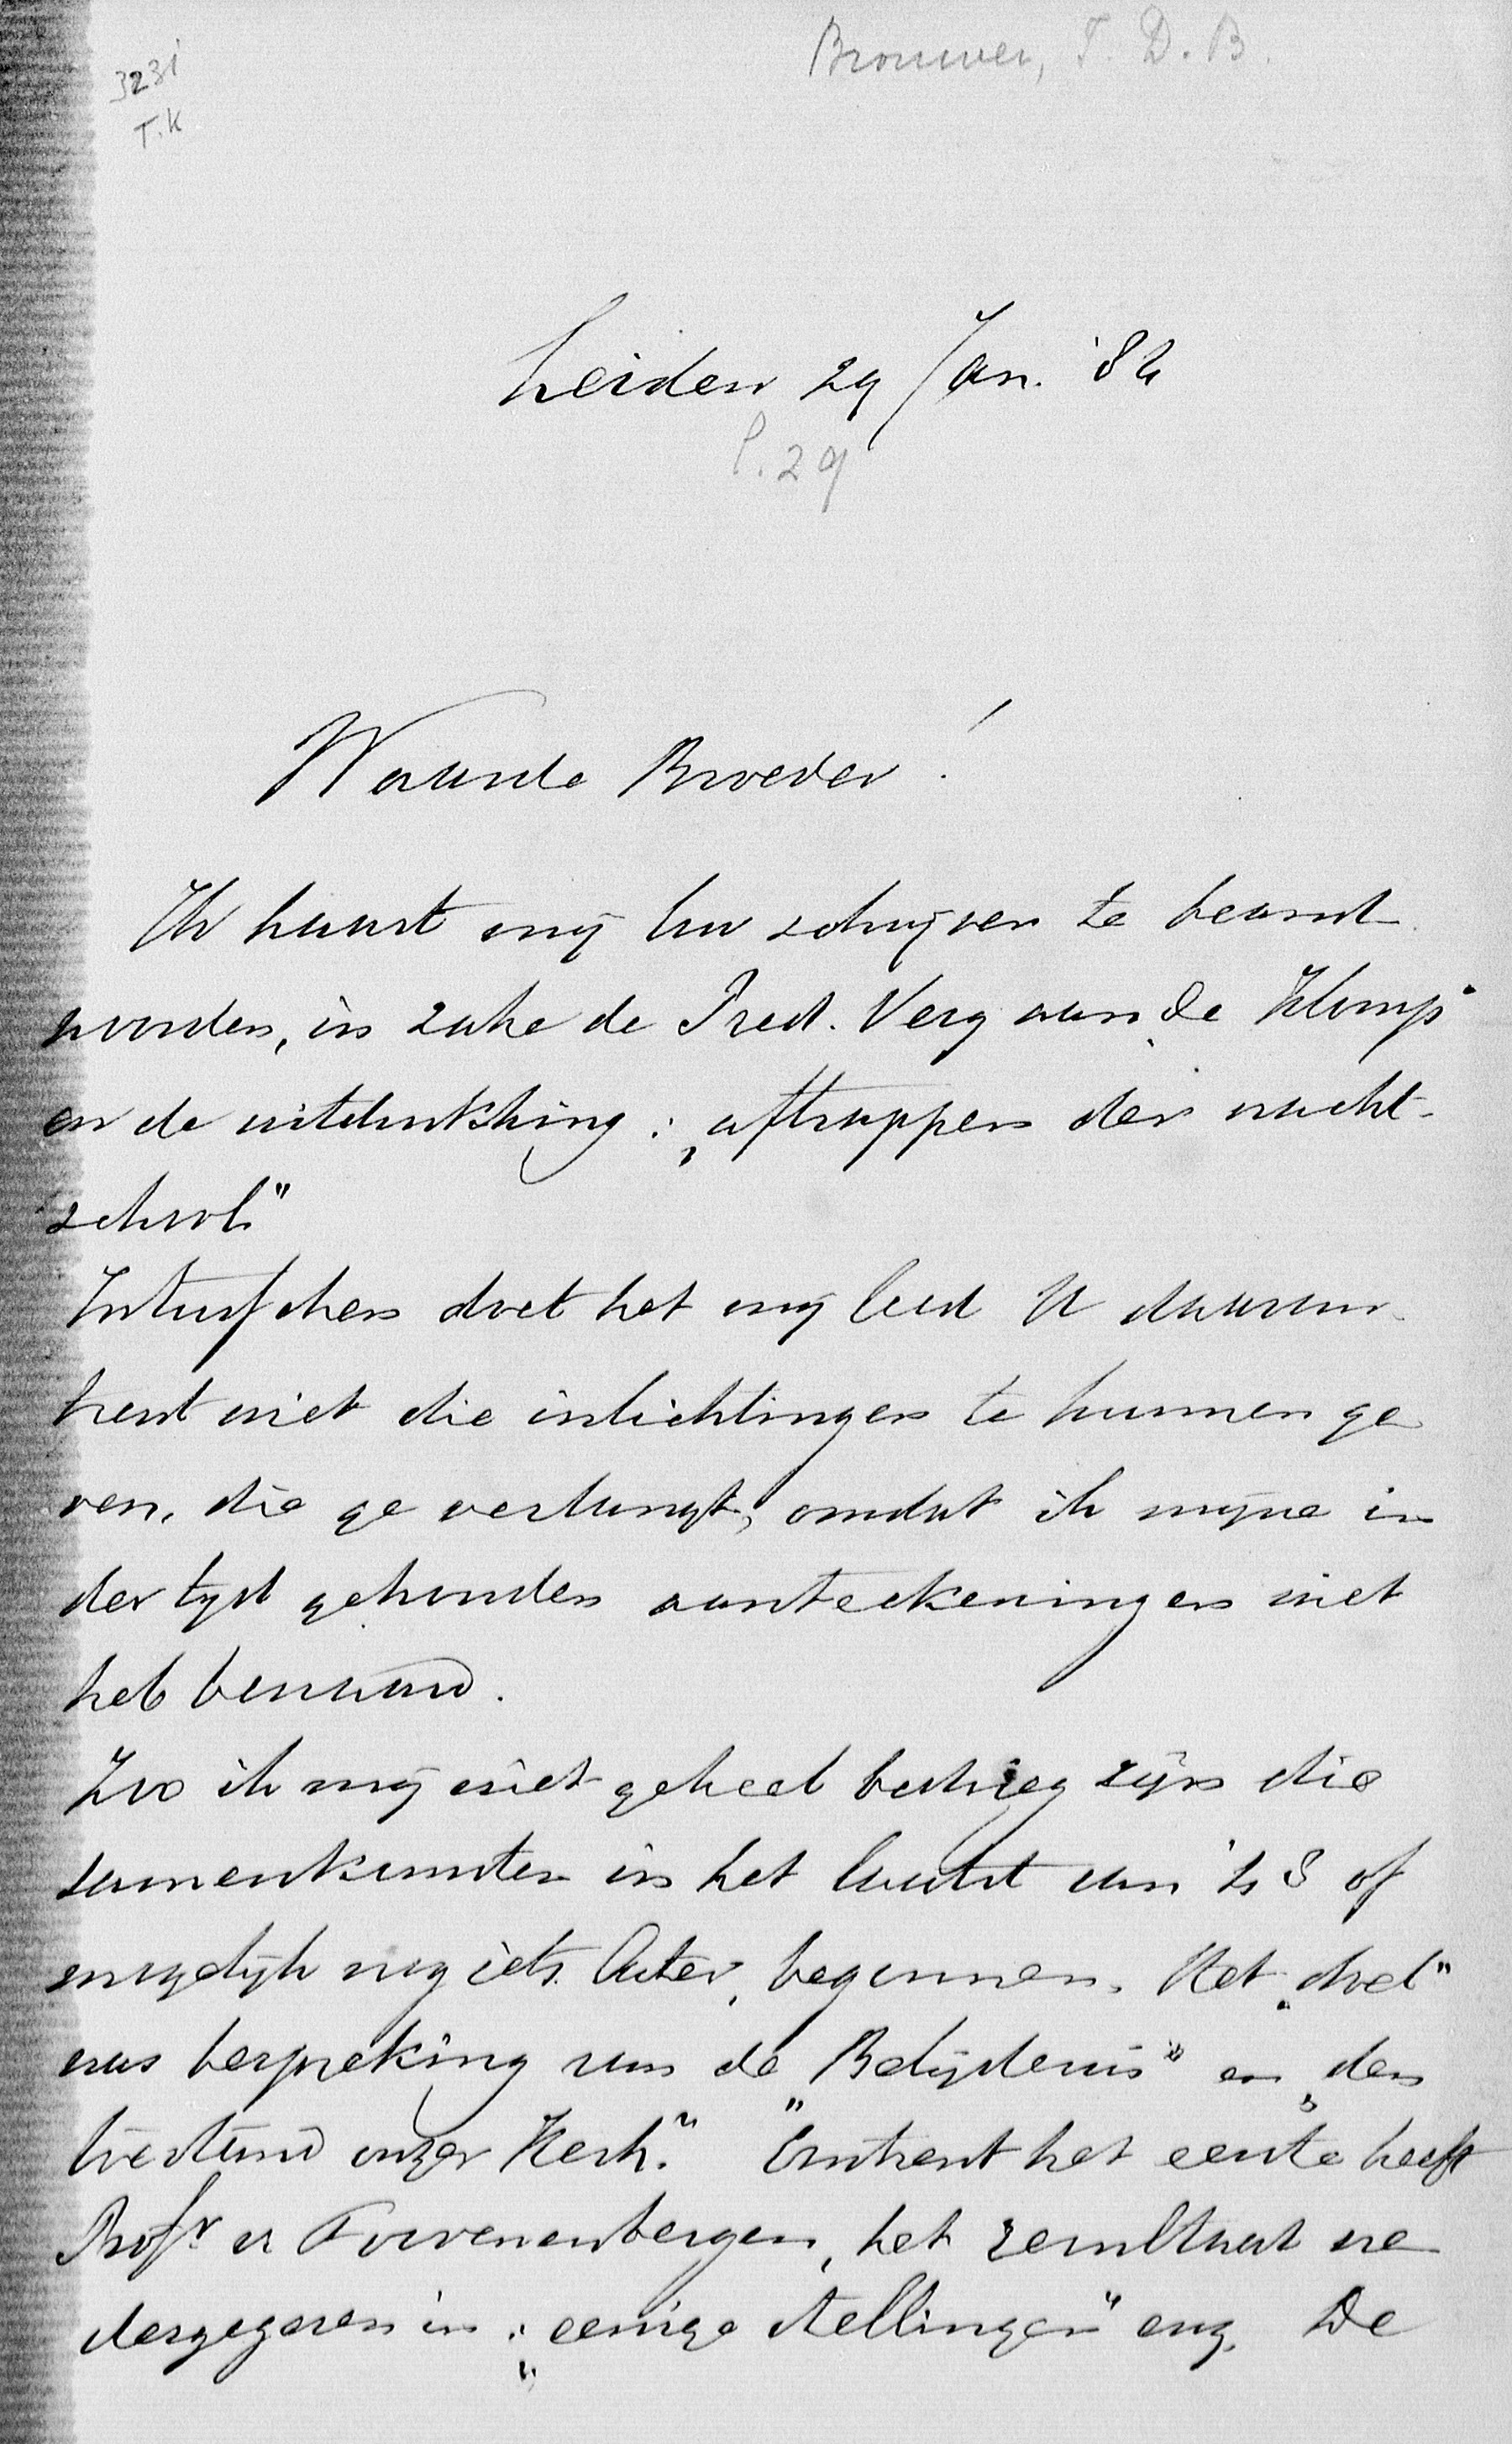 Brouwer, T. D. B.
3231
T.K
Leiden 29 Jan. '82
l. 29
Waarde Broeder!
Ik haast mij Uw schrijven te beant
woorden, in zake de Pred. Verg aan „de Klomp"
en de uitdrukking: „aftrappen der nacht-
school"
Intusschen doet het mij leed U daarom-
trent niet die inlichtingen te kunnen ge
ven, die ge verlangt, omdat ik mijne in
der tijd gehouden aanteekeningen niet
heb bewaard.
Zoo ik mij niet geheel bedrieg zijn die
samenkomsten in het laatst van
mogelijk nog iets later, begonnen. Het „doel"
was bespreking van de „Belijdenis" en „den
toestand onzer Kerk." Omtrent het eerste heeft
Profr v Toorenenbergen, het resultaat ne
dergegeven in: „eenige stellingen" enz. De